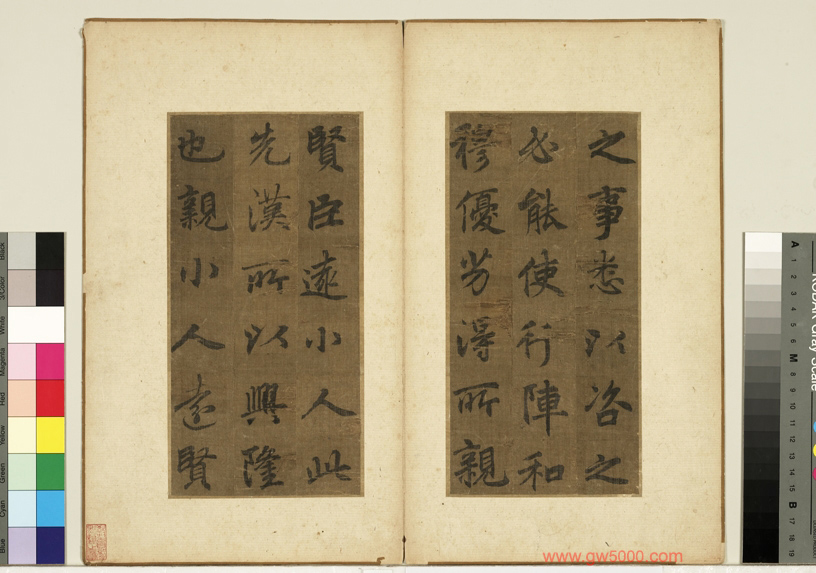 之事悉以咨之
必能使行陣和
穆優劣得所親
賢臣遠小人此
先漢所以興隆
也親小人遠賢
www.gw5000.com
Black
3/Color
White
Magenta
Red
Yellow
Green
Cyan
Blue
KODAK Gray Scale
A 1 2 3 4 5 6 M 8 9 10 11 12 13 14 15 B 17 18 19